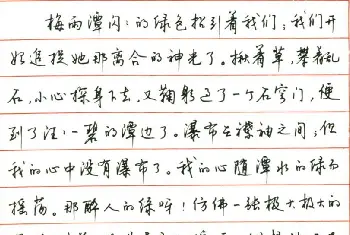 梅雨潭闪闪的绿色招引着我们；我们开
始追捉她那离合的神光了。揪着草，攀着乱
石，小心探身下去，又鞠躬过了一个石穹门，便
到了汪汪一碧的潭边了。瀑布在襟袖之间；但
我的心中没有瀑布了。我的心随潭水的绿而
摇荡。那醉人的绿呀！仿佛一张极大极大的